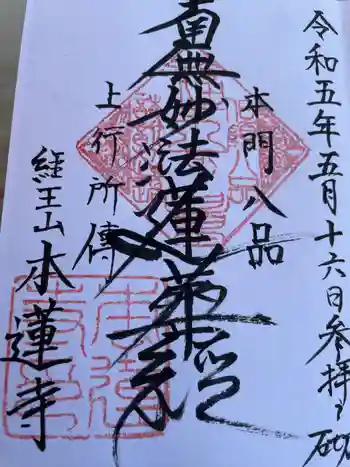 令和五年五月十六日参拝之砌
本門八品
南無妙法蓮華経
上行所傳
経王山 本蓮寺